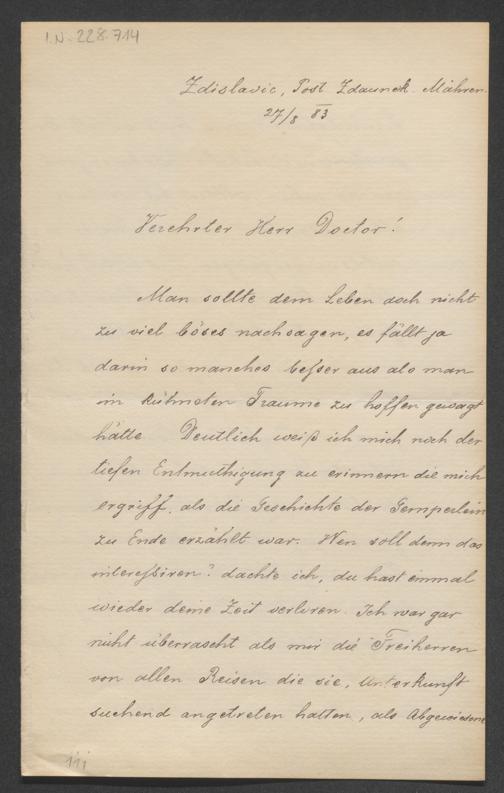 I.N. 228.714
Zdislavic, Post Zdaunek. Mähren.
27/8 83
Verehrter Herr Doctor!
Man sollte dem Leben doch nicht
zu viel böses nachsagen, es fällt ja
darin so manches beſser aus als man
im kühnsten Traume zu hoffen gewagt
hätte. Deutlich weiß ich mich noch der
tiefen Entmuthigung zu erinnern die mich
ergriff, als die Geschichte der Gemperlein
zu Ende erzählt war. Wen soll denn das
intereſsiren? dachte ich, du hast einmal
wieder deine Zeit verloren. Ich war gar
nicht überrascht als mir die Freiherren
von allen Reisen die sie, Unterkunft
suchend angetreten hatten, als Abgewiesene